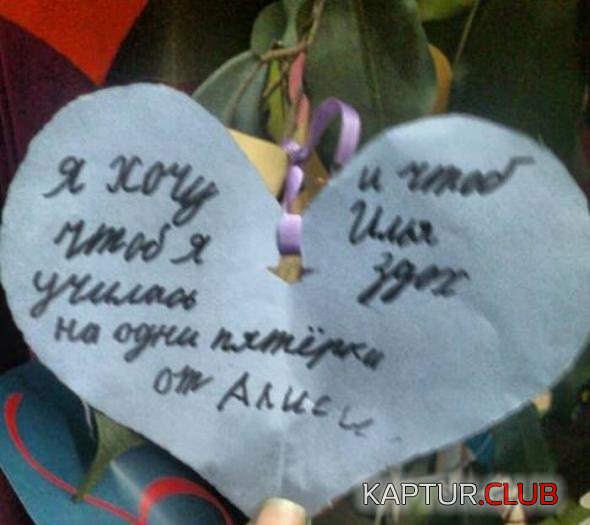 я хочу
чтоб я
училась
на одни пятёрки
от Алисы.
и чтоб
Илья
здох
KAPTUR.CLUB